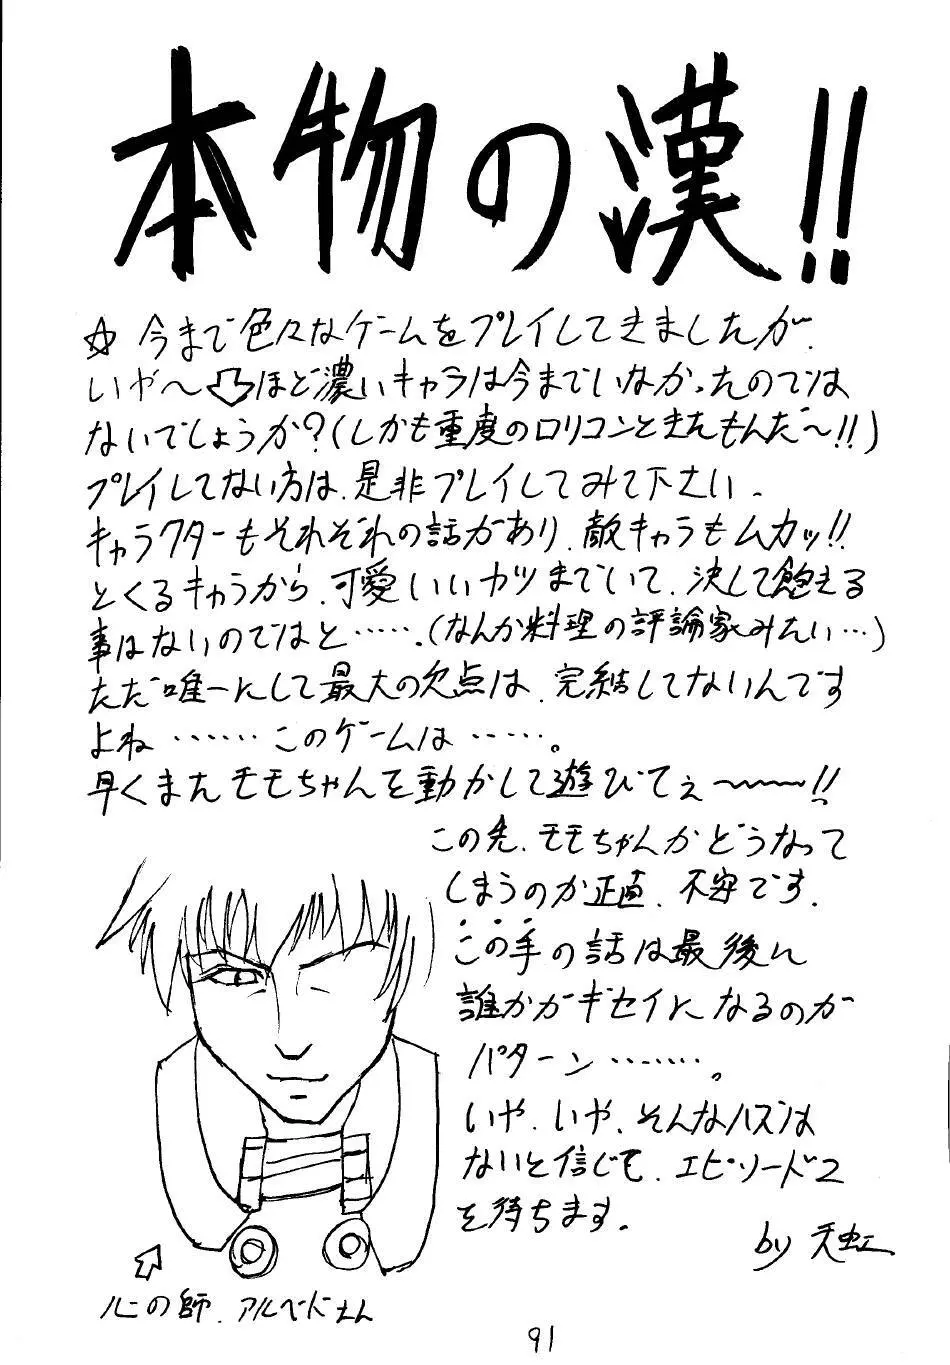 本物の漢!!
☆今まで色々なゲームをプレイしてきましたが、
いや〜⇩ほど濃いキャラは今までいなかったのでは
ないでしょうか?(しかも重度のロリコンときたもんだ〜!!)
プレイしてない方は、是非プレイしてみて下さい。
キャラクターもそれぞれの話があり、敵キャラもムカッ!!
とくるキャラから、可愛いいヤツまでいて、決して飽える
事はないのではと……。(なんか料理の評論家みたい…)
ただ唯一にして最大の欠点は、完結してないんです
よね……このゲームは……。
早くまたモモちゃんを動かして遊びてぇ〜〜!!
この先、モモちゃんがどうなって
しまうのか正直、不安です。
この手の話は最後に
誰かがギセイになるのが
パターン……。
いや、いや、そんなハズは
ないと信じて、エピソード2
を待ちます。
by 天虹
心の師、アルベドさん
91